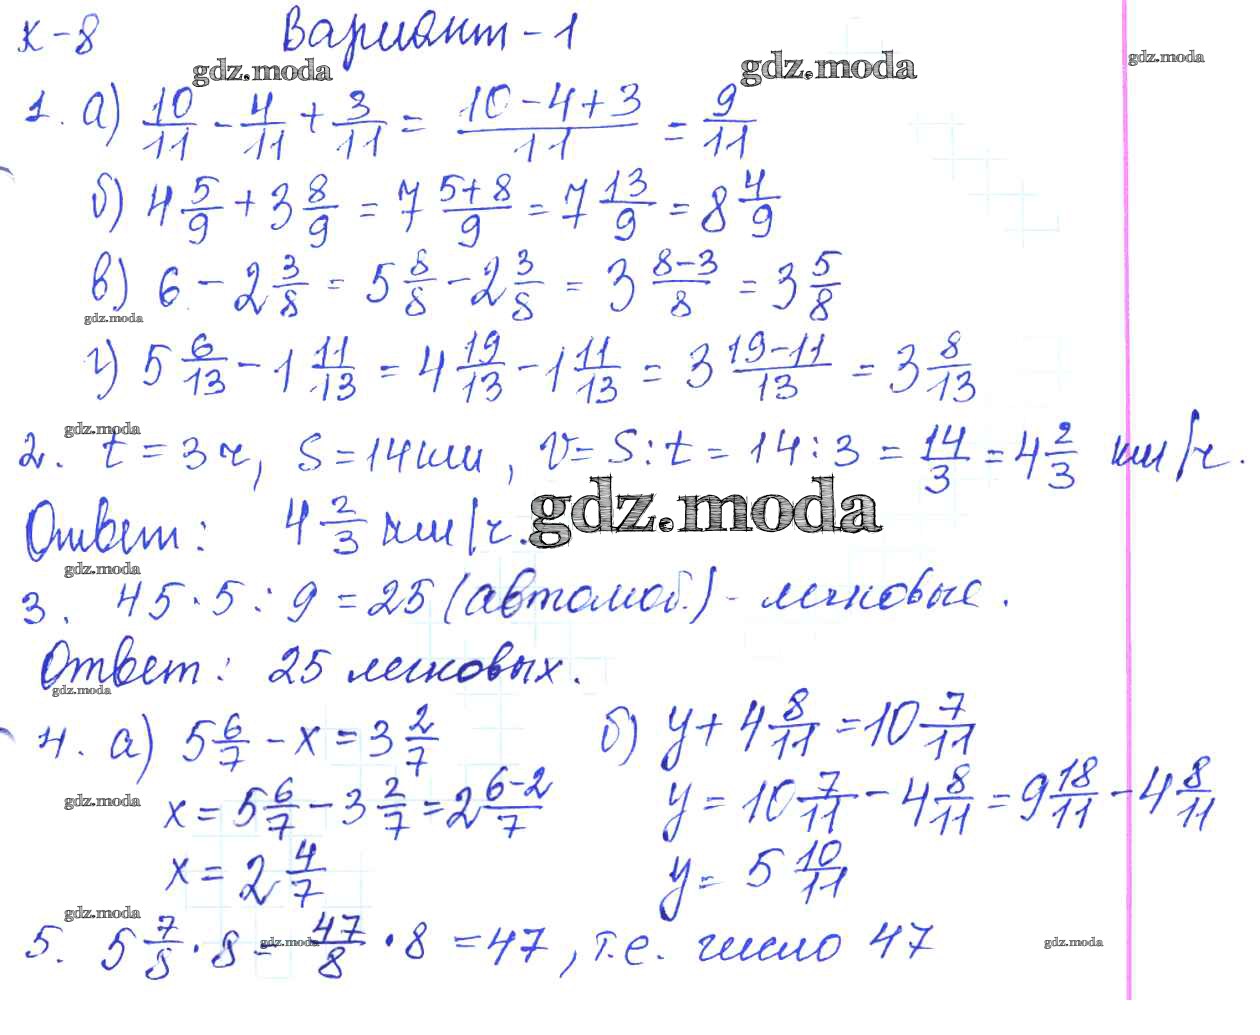 К-8 Вариант-1
gdz.moda gdz.moda gdz.moda
1. а) 10/11 - 4/11 + 3/11 = (10-4+3)/11 = 9/11
б) 4 5/9 + 3 8/9 = 7 (5+8)/9 = 7 13/9 = 8 4/9
в) 6 - 2 3/8 = 5 8/8 - 2 3/8 = 3 (8-3)/8 = 3 5/8
gdz.moda
г) 5 6/13 - 1 11/13 = 4 19/13 - 1 11/13 = 3 (19-11)/13 = 3 8/13
gdz.moda
2. t = 3 ч, S = 14 км, V = S : t = 14 : 3 = 14/3 = 4 2/3 км/ч.
Ответ: 4 2/3 км/ч.
gdz.moda
gdz.moda
3. 45 · 5 : 9 = 25 (автомоб.) - легковые.
Ответ: 25 легковых.
gdz.moda
4. а) 5 6/7 - x = 3 2/7 б) y + 4 8/11 = 10 7/11
x = 5 6/7 - 3 2/7 = 2 (6-2)/7 y = 10 7/11 - 4 8/11 = 9 18/11 - 4 8/11
gdz.moda gdz.moda
x = 2 4/7 y = 5 10/11
gdz.moda
5. 5 7/8 · 8 = 47/8 · 8 = 47, т.е. число 47
gdz.moda gdz.moda